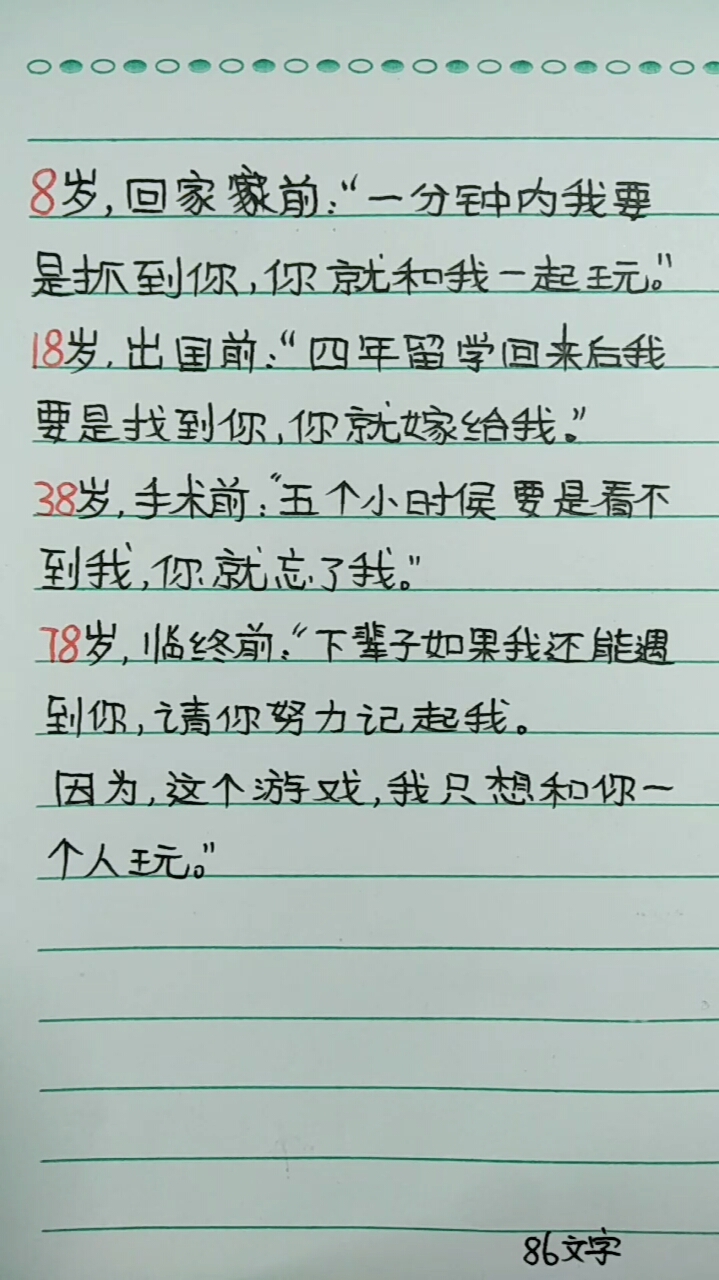 8岁,回家家前:“一分钟内我要
是抓到你,你就和我一起玩。”
18岁,出国前:“四年留学回来后我
要是找到你,你就嫁给我。”
38岁,手术前:“五个小时候要是看不
到我,你就忘了我。”
78岁,临终前:“下辈子如果我还能遇
到你,请你努力记起我。
因为,这个游戏,我只想和你一
个人玩。”
86文字